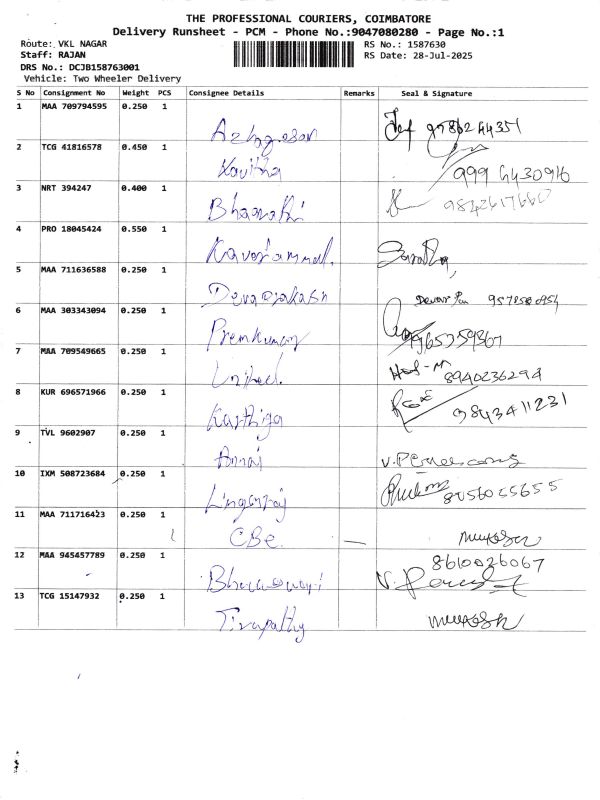 THE PROFESSIONAL COURIERS, COIMBATORE
Delivery Runsheet - PCM - Phone No.:9047080280 - Page No.:1
Route: VKL NAGAR RS No.: 1587630
Staff: RAJAN RS Date: 28-Jul-2025
DRS No.: DCJB158763001
Vehicle: Two Wheeler Delivery
S No Consignment No Weight PCS Consignee Details Remarks Seal & Signature
1 MAA 709794595 0.250 1 Azhagesan 9786244351
2 TCG 41816578 0.450 1 Kavitha 999 4430916
3 NRT 394247 0.400 1 Bharathi
4 PRO 18045424 0.550 1 Kaverammal.
5 MAA 711636588 0.250 1 Devaprakash
6 MAA 303343094 0.250 1 Premkumar 9965759367
7 MAA 709549665 0.250 1 United. 8940236294
8 KUR 696571966 0.250 1 Karthiga 9843411231
9 TVL 9602907 0.250 1 Annai
10 IXM 508723684 0.250 1 Lingaraj 8056055655
11 MAA 711716423 0.250 1 CBE. —
12 MAA 945457789 0.250 1 Bhuvaneswari 8610026067
13 TCG 15147932 0.250 1 Tirupathy